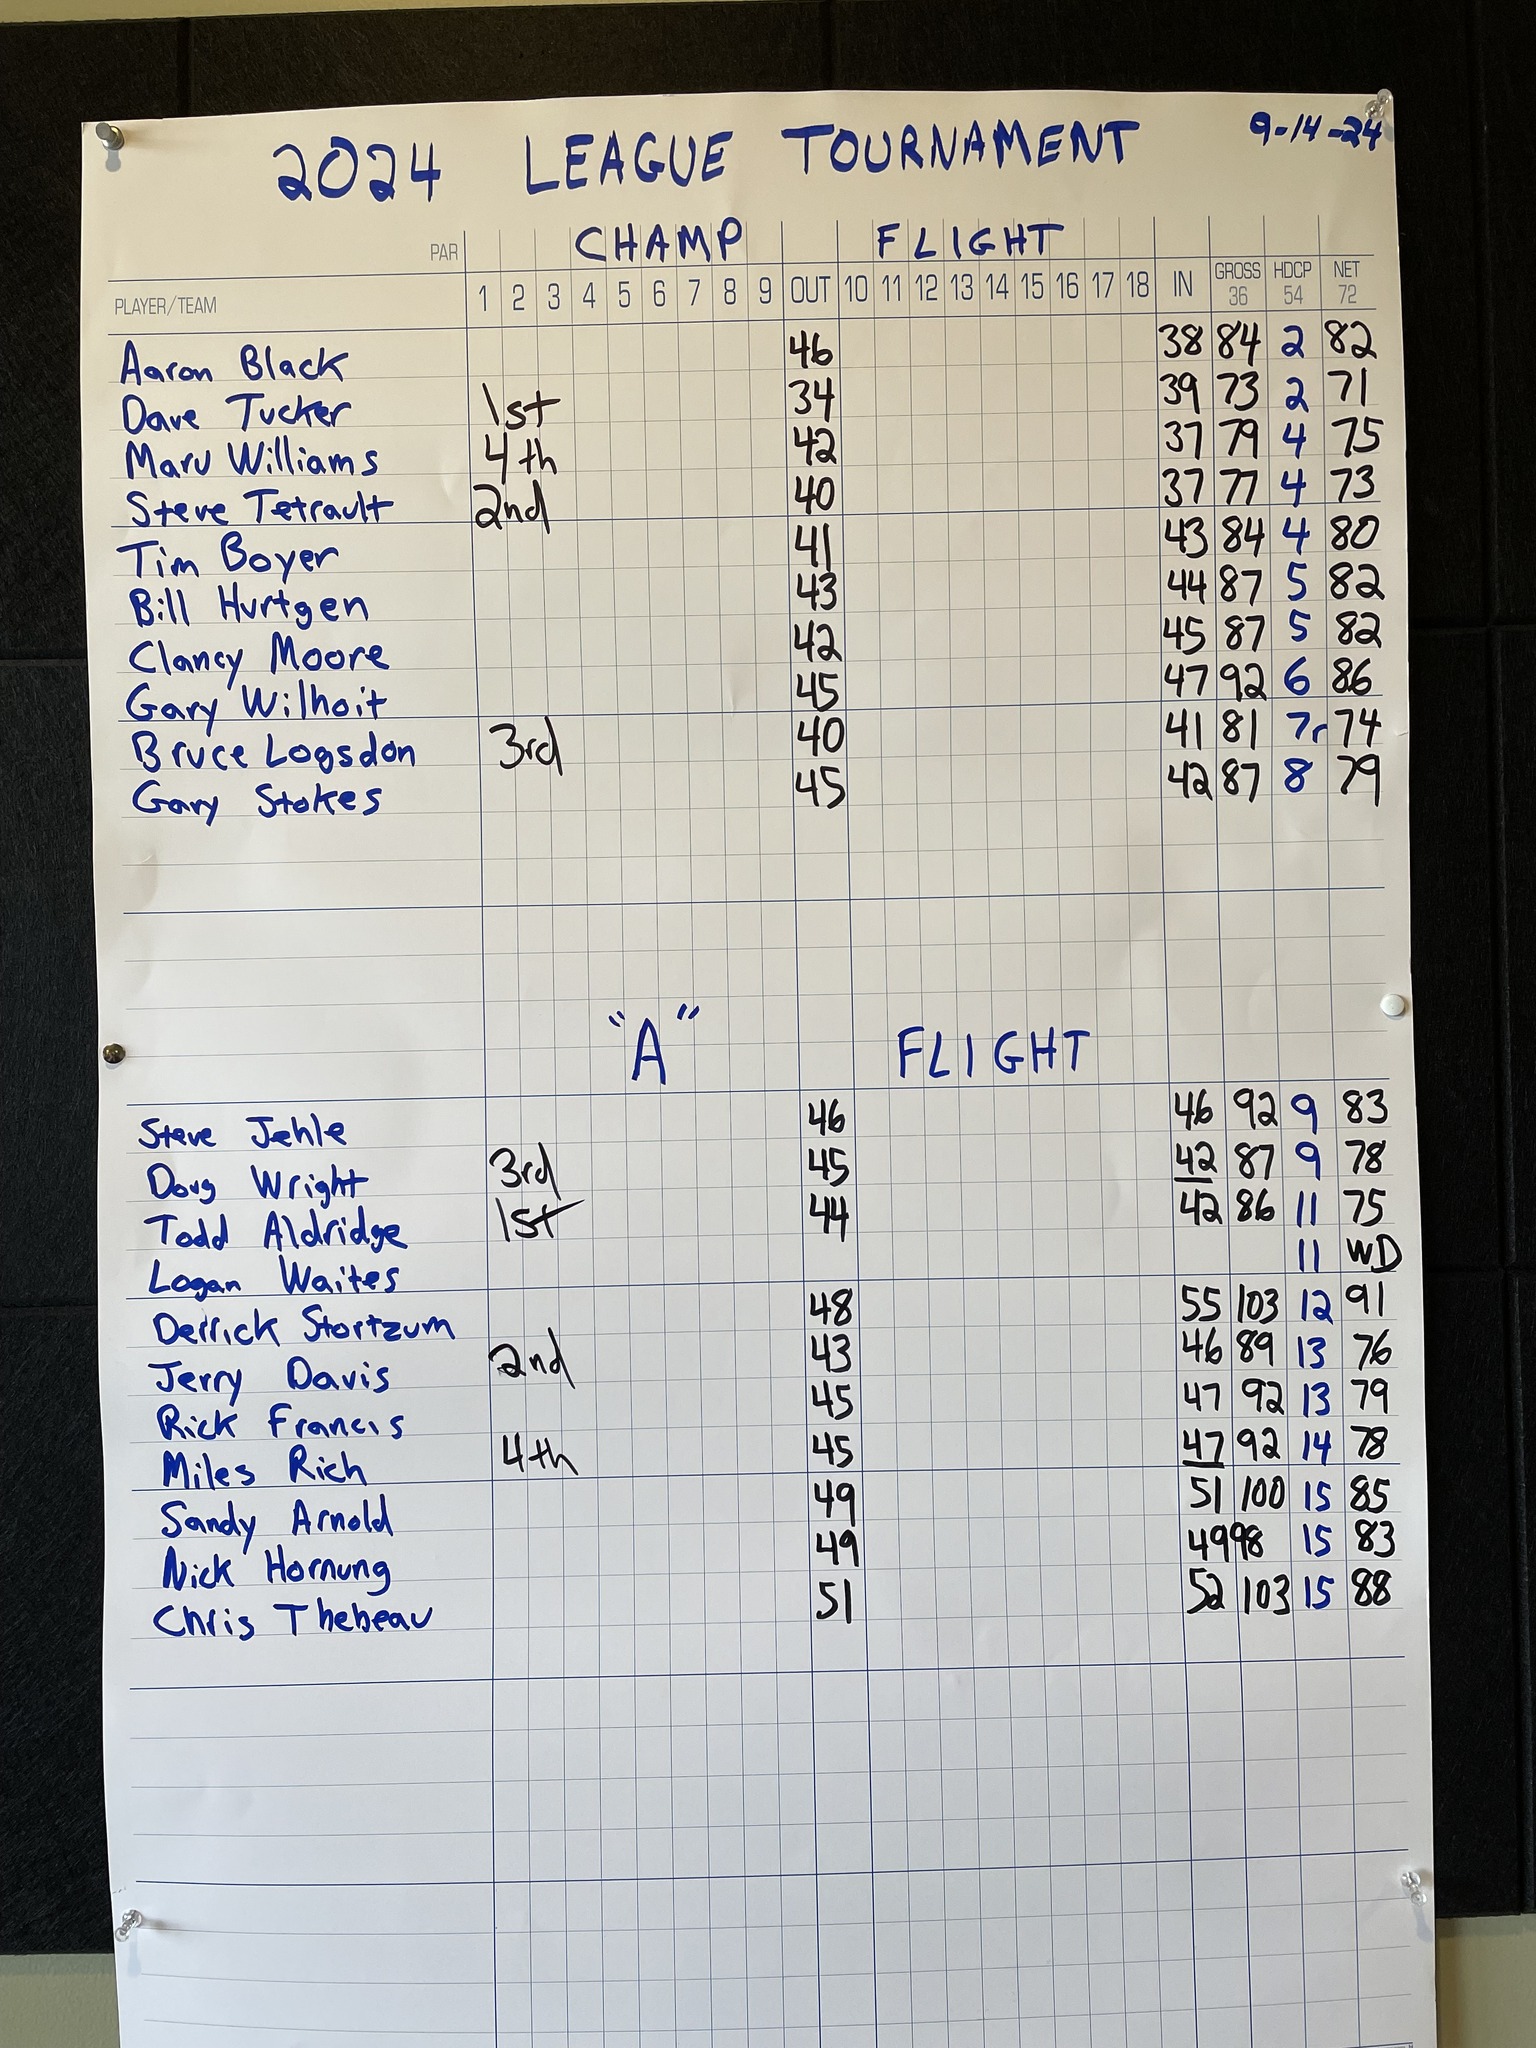 2024 LEAGUE TOURNAMENT 9-14-24
PAR CHAMP FLIGHT
PLAYER/TEAM 1 2 3 4 5 6 7 8 9 OUT 10 11 12 13 14 15 16 17 18 IN GROSS 36 HDCP 54 NET 72
Aaron Black 46 38 84 2 82
Dave Tucker 1st 34 39 73 2 71
Marv Williams 4th 42 37 79 4 75
Steve Tetrault 2nd 40 37 77 4 73
Tim Boyer 41 43 84 4 80
Bill Hurtgen 43 44 87 5 82
Clancy Moore 42 45 87 5 82
Gary Wilhoit 45 47 92 6 86
Bruce Logsdon 3rd 40 41 81 7r 74
Gary Stokes 45 42 87 8 79
"A" FLIGHT
Steve Jehle 46 46 92 9 83
Doug Wright 3rd 45 42 87 9 78
Todd Aldridge 1st 44 42 86 11 75
Logan Waites 11 WD
Derrick Stortzum 48 55 103 12 91
Jerry Davis 2nd 43 46 89 13 76
Rick Francis 45 47 92 13 79
Miles Rich 4th 45 47 92 14 78
Sandy Arnold 49 51 100 15 85
Nick Hornung 49 49 98 15 83
Chris Thebeau 51 52 103 15 88